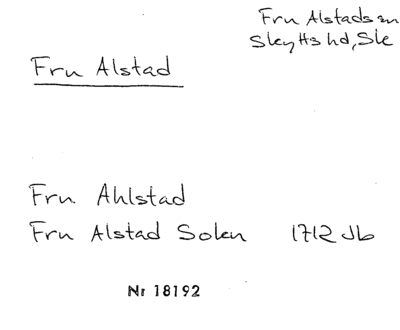 Fru Alstads sn
Skytts hd, Skå
Fru Alstad
Fru Ahlstad
Fru Alstad Soken 1712 Jb
Nr 18192